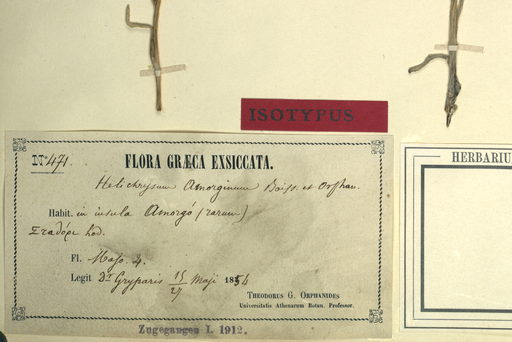 ISOTYPUS
HERBARIU
Nº 471.
FLORA GRÆCA EXSICCATA.
Helichrysum Amorginum Boiss. et Orphan.
Habit. in insula Amorgó (rarum)
hod.
Fl. Majo. 4.
Legit Dr Gryparis 15/27 Maji 1854
THEODORUS G. ORPHANIDES
Universitatis Athenarum Botan. Professor.
Zugegangen I. 1912.